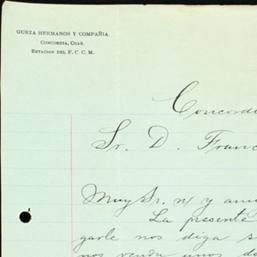 GUEZA HERMANOS Y COMPAÑIA.
CONCORDIA, COAH.
ESTACION DEL F. C. C. M.
Concordi
Sr. D. Franc
Muy Sr. n/ y ami
La presente
garle nos diga s
nos venda unos do